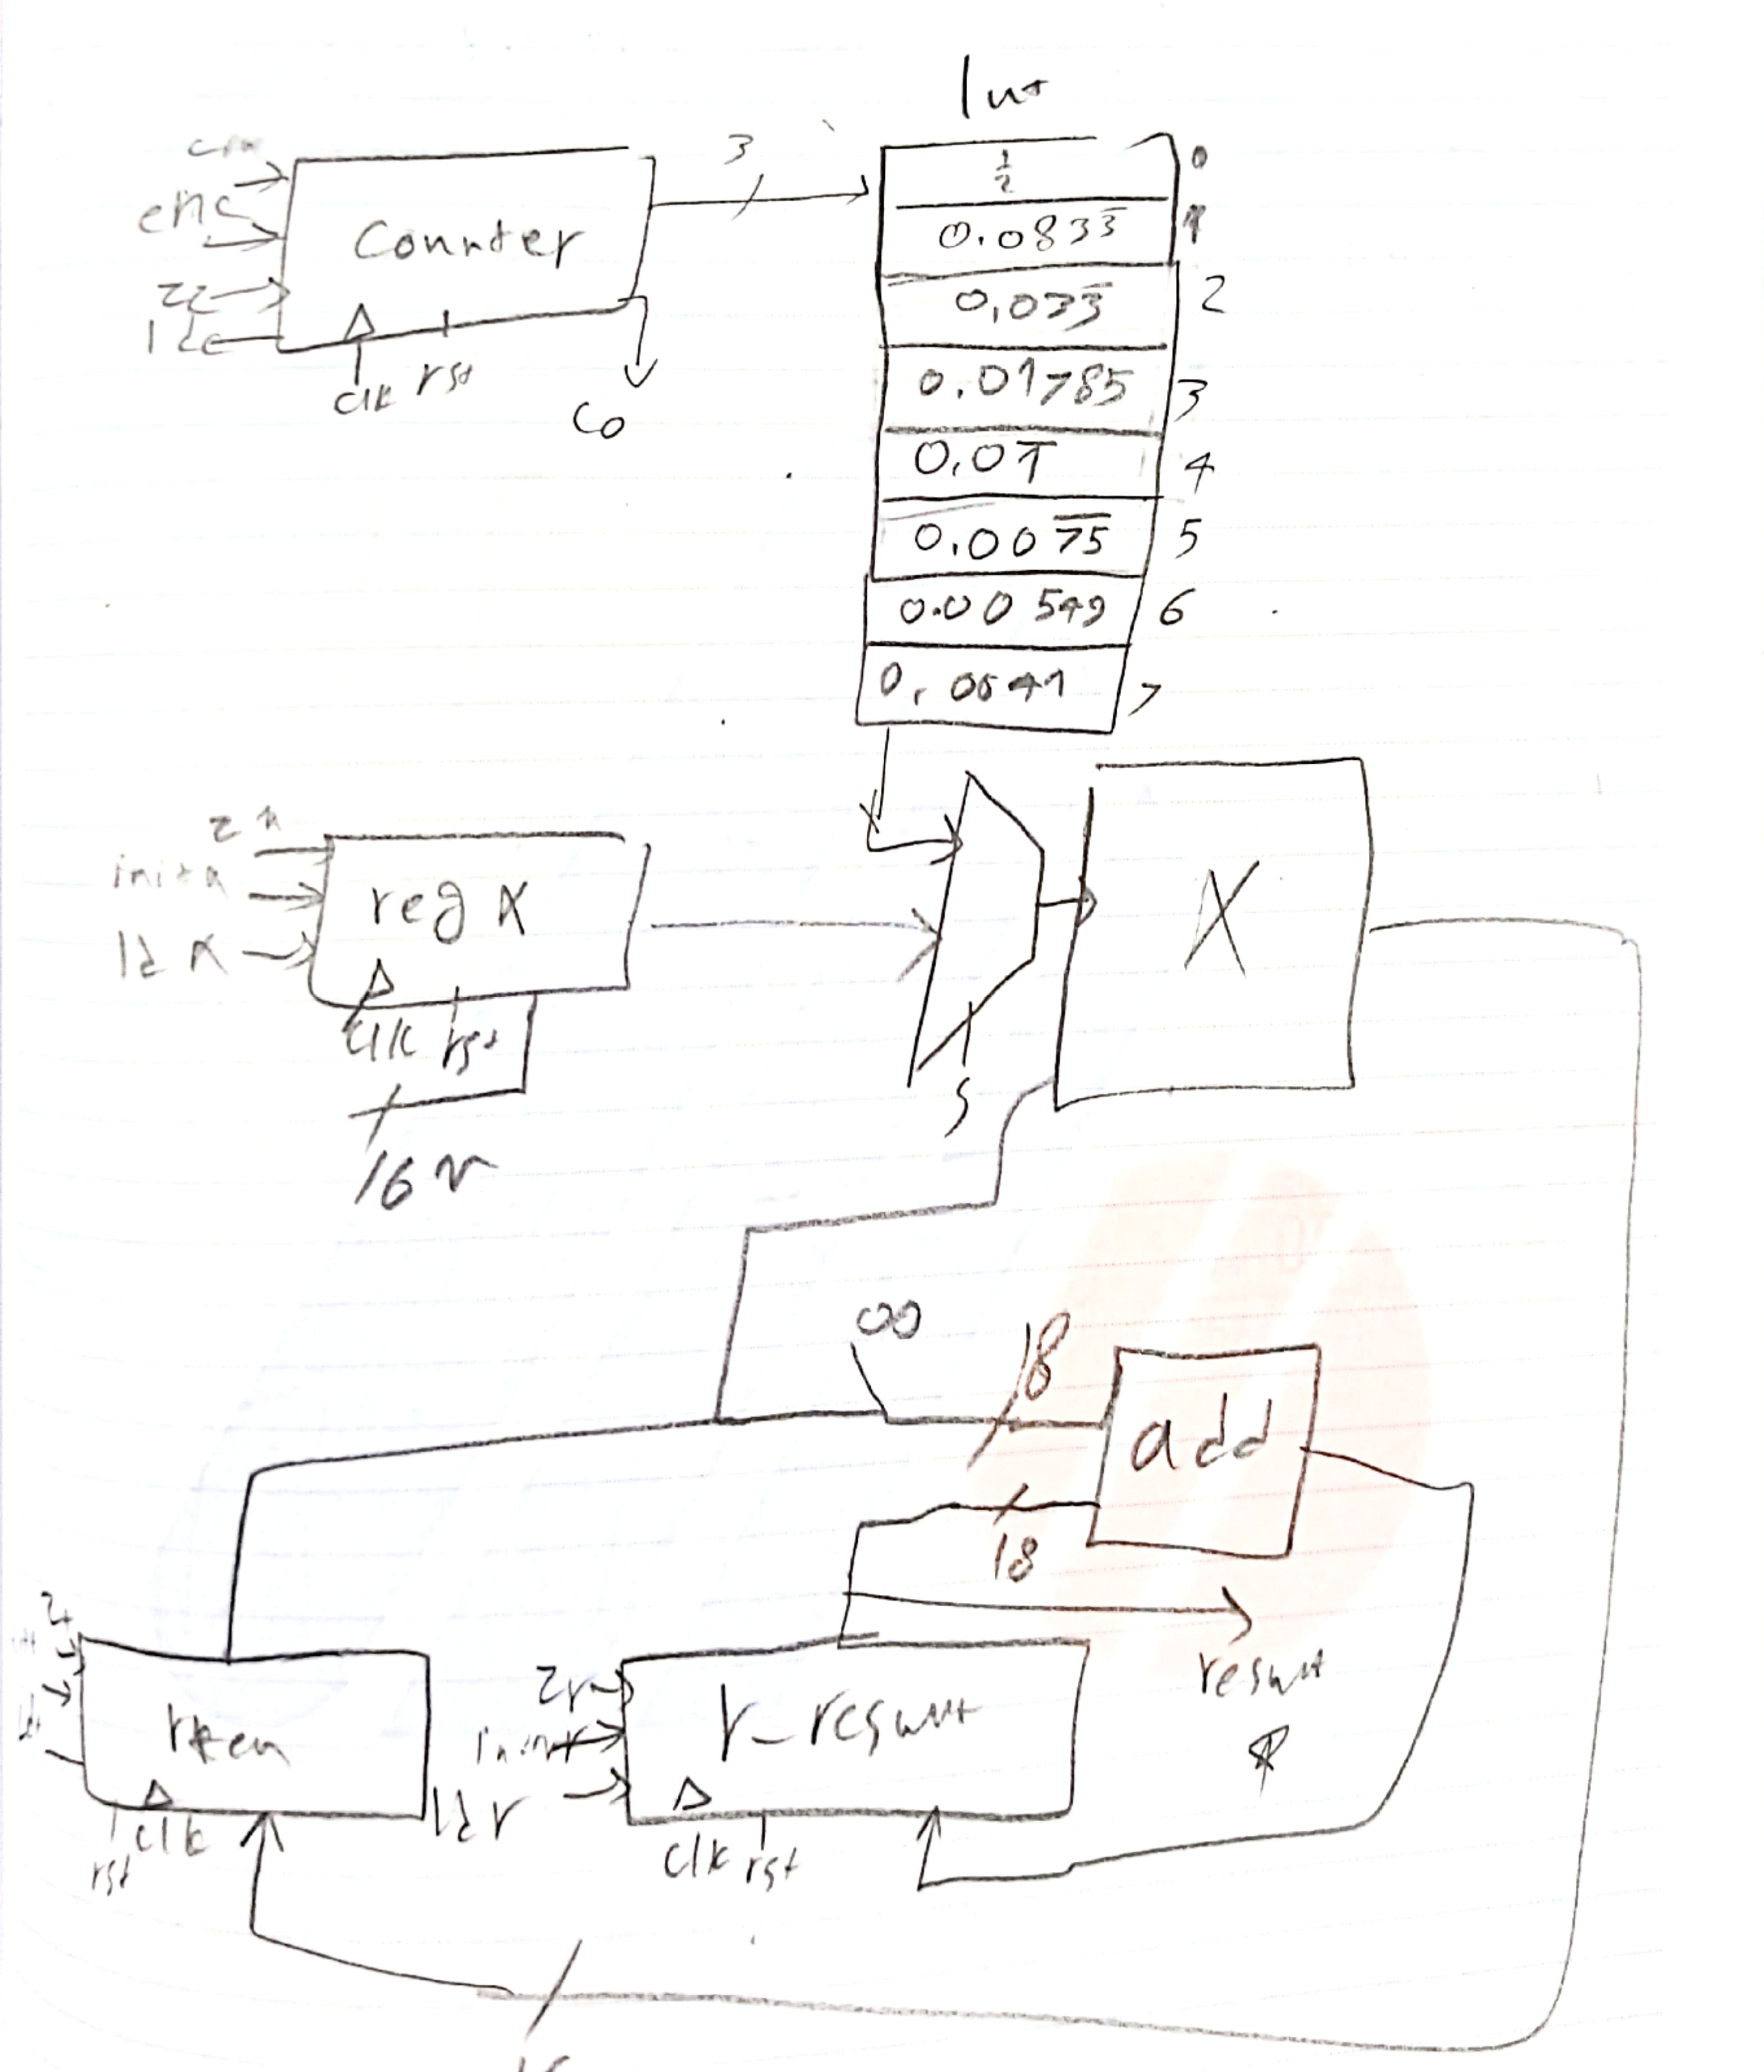 lut
3
enc
counter
zc
ldc
clk rst
co
1/2 0
0.0833̅ 1
0.033̅ 2
0.01785 3
0.01̅ 4
0.0075̅ 5
0.00549 6
0.0041 7
zx
initx
ld x
reg x
clk rst
16
X
s
00
18
add
18
result
zt
clk
rst
zr
initr
ldr
r_result
clk rst